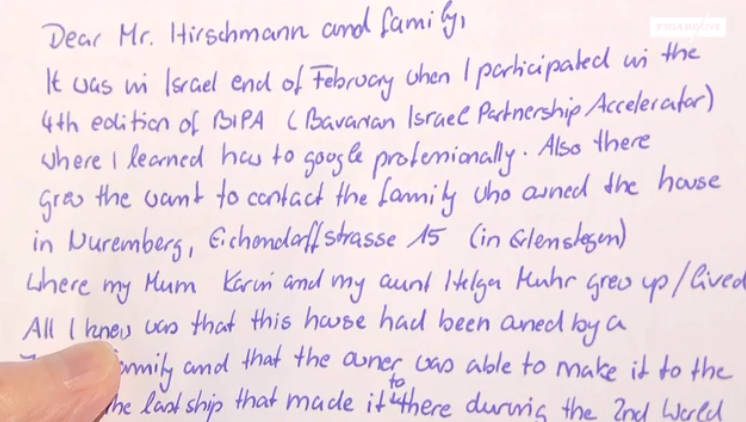 FIGAROLIVE
Dear Mr. Hirschmann and family,
It was in Israel end of February when I participated in the
4th edition of BIPA (Bavarian Israel Partnership Accelerator)
where I learned how to google professionally. Also there
grew the want to contact the family who owned the house
in Nuremberg, Eichendorffstrasse 15 (in Erlenstegen)
where my Mum Karin and my aunt Helga Muhr grew up/lived
All I knew was that this house had been owned by a
family and that the owner was able to make it to the
the last ship that made it to there during the 2nd World